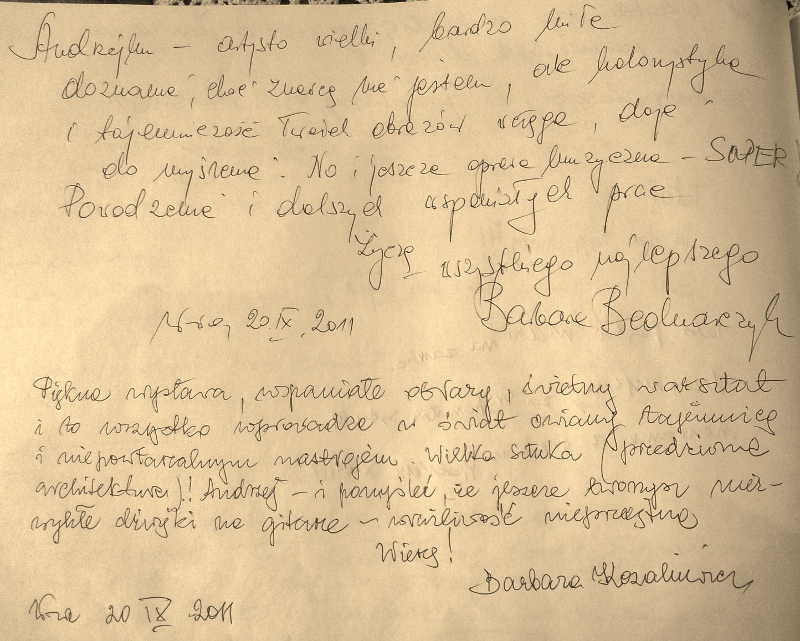 Andrzejku – artysto wielki, bardzo miłe
doznania, choć znawcą nie jestem, ale kolorystyka
i tajemniczość Twoich obrazów wciąga, daje
do myślenia. No i jeszcze oprawa muzyczna – SUPER
Powodzenia i dalszych wspaniałych prac
Życzę wszystkiego najlepszego
Barbara Bednarczyk
20 IX 2011
Piękna wystawa, wspaniałe obrazy, świetny warsztat
i to wszystko wprowadza w świat owiany tajemnicą
i niepowtarzalnym nastrojem. Wielka sztuka (przedziwna
architektura)! Andrzej – i pomyśleć, że jeszcze tworzysz niez-
wykłe dźwięki na gitarze – wrażliwość nieprzeciętna
Wierz!
Barbara
20 IX 2011